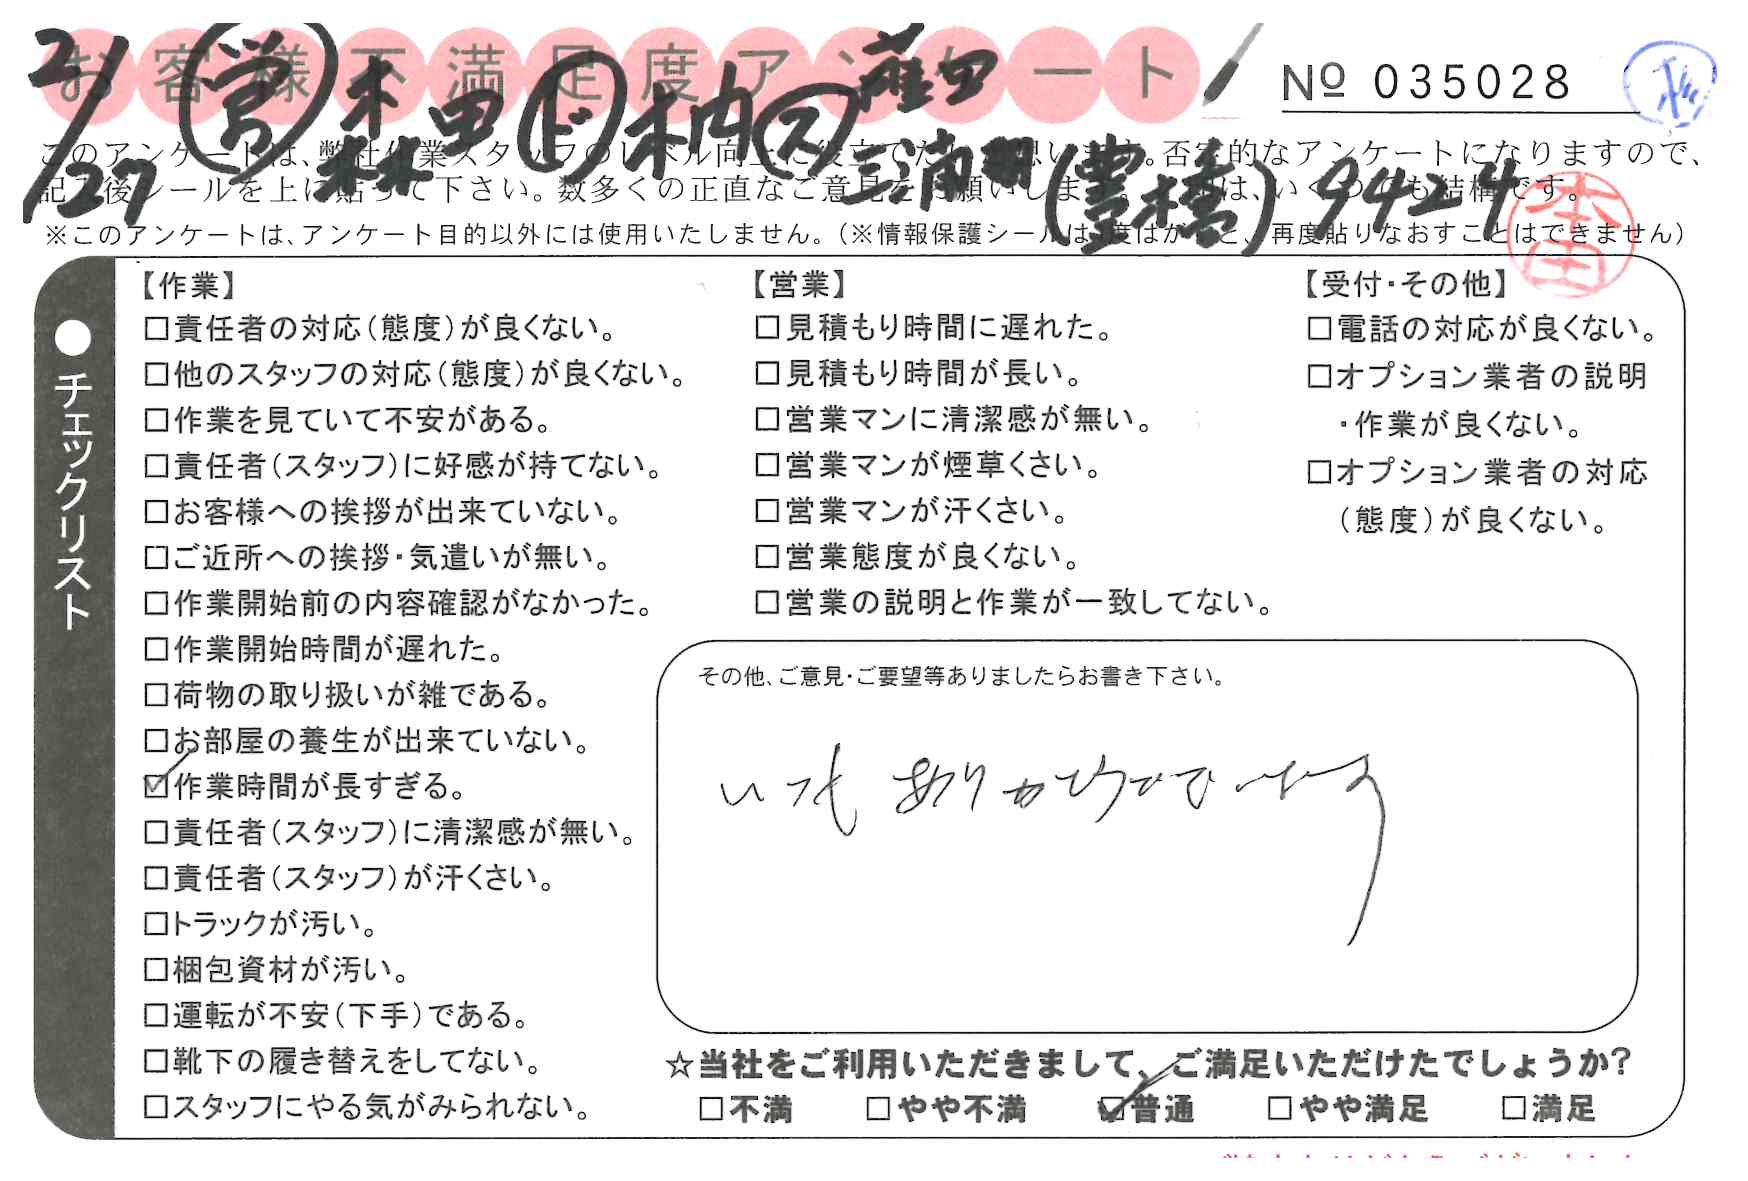 お客様不満足度アンケート
№ 035028
2/27 営 本田 森 ド 木内 ス 雇田 三浦 (豊橋) 9424
このアンケートは、弊社作業スタッフのレベル向上に役立てたいと思います。否定的なアンケートになりますので、
記入後シールを上に貼って下さい。数多くの正直なご意見をお願いします。いくつでも結構です。
※このアンケートは、アンケート目的以外には使用いたしません。(※情報保護シールは1度はがすと、再度貼りなおすことはできません)
本田
●チェックリスト
【作業】
□責任者の対応(態度)が良くない。
□他のスタッフの対応(態度)が良くない。
□作業を見ていて不安がある。
□責任者(スタッフ)に好感が持てない。
□お客様への挨拶が出来ていない。
□ご近所への挨拶・気遣いが無い。
□作業開始前の内容確認がなかった。
□作業開始時間が遅れた。
□荷物の取り扱いが雑である。
□お部屋の養生が出来ていない。
☑作業時間が長すぎる。
□責任者(スタッフ)に清潔感が無い。
□責任者(スタッフ)が汗くさい。
□トラックが汚い。
□梱包資材が汚い。
□運転が不安(下手)である。
□靴下の履き替えをしてない。
□スタッフにやる気がみられない。
【営業】
□見積もり時間に遅れた。
□見積もり時間が長い。
□営業マンに清潔感が無い。
□営業マンが煙草くさい。
□営業マンが汗くさい。
□営業態度が良くない。
□営業の説明と作業が一致してない。
【受付・その他】
□電話の対応が良くない。
□オプション業者の説明
・作業が良くない。
□オプション業者の対応
(態度)が良くない。
その他、ご意見・ご要望等ありましたらお書き下さい。
いつも ありがとうございます
☆当社をご利用いただきまして、ご満足いただけたでしょうか?
□不満 □やや不満 ☑普通 □やや満足 □満足